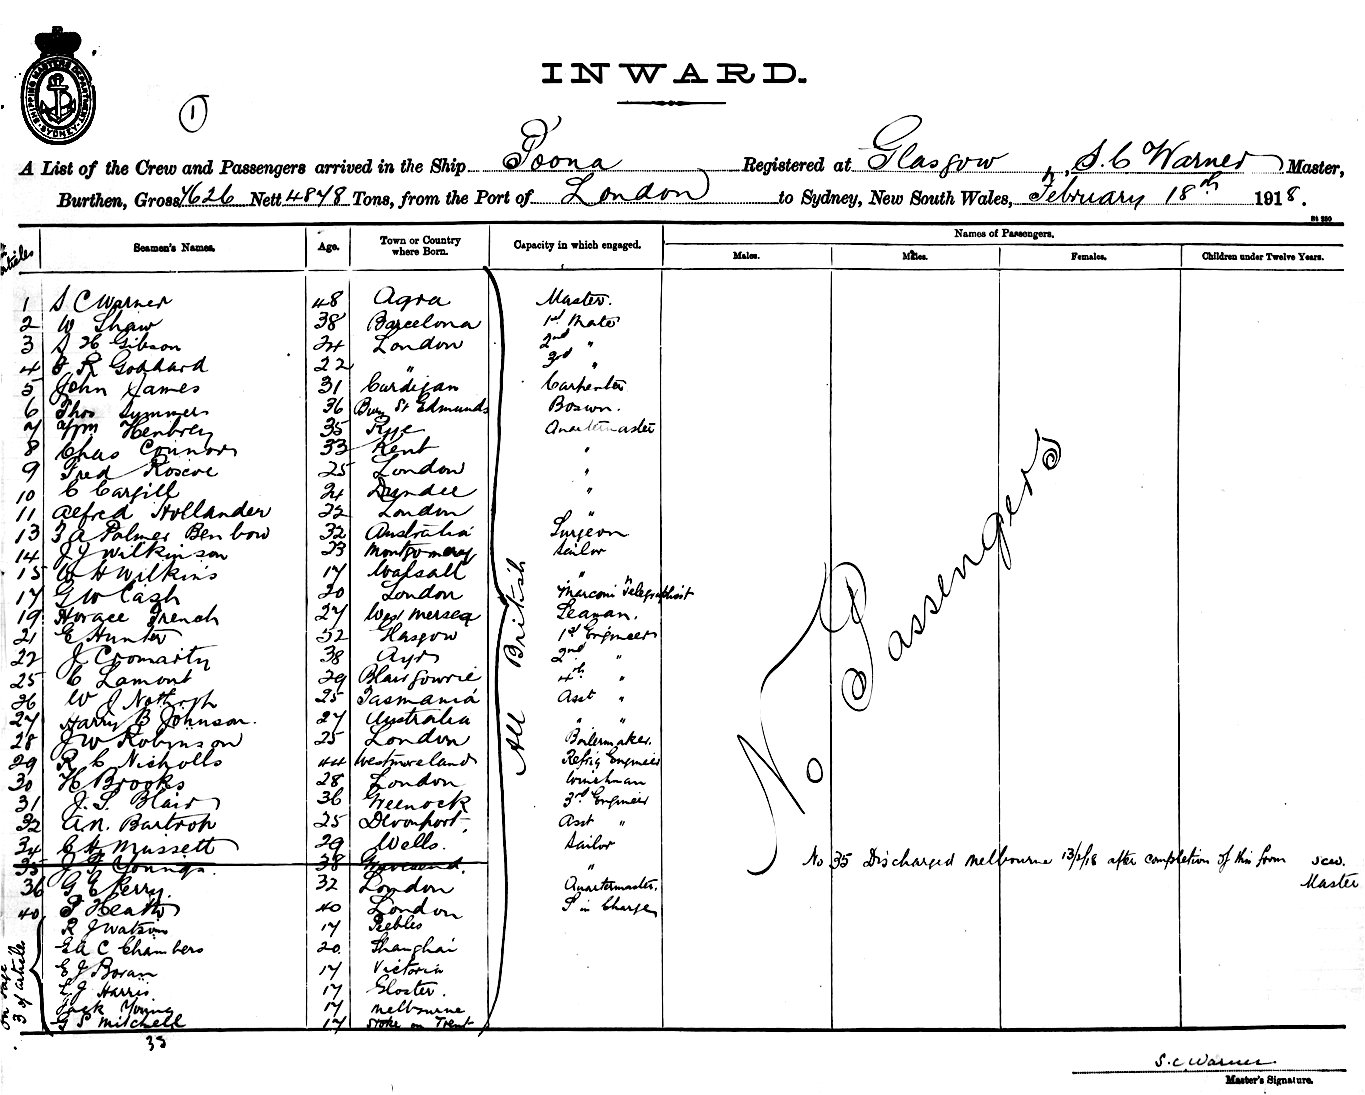 SHIPPING MASTERS DEPARTMENT SYDNEY
1
INWARD.
A List of the Crew and Passengers arrived in the Ship Poona Registered at Glasgow, S. C Warner Master,
Burthen, Gross 7626 Nett 4848 Tons, from the Port of London to Sydney, New South Wales, February 18th 1918.
articles Seamen's Names. Age. Town or Country where Born. Capacity in which engaged. Names of Passengers.
Males. Males. Females. Children under Twelve Years.
1 S C Warner 48 Agra Master.
2 W Shaw 38 Barcelona 1st Mate
3 S H Gibson 24 London 2nd "
4 R Goddard 22 " 3rd "
5 John James 31 Cardigan Carpenter
6 Thos Symmers 36 Bury St Edmunds Boswn.
7 Wm Henbrey 35 Rye Quartermaster
8 Chas Connor 33 Kent "
9 Fred Roscoe 25 London "
10 C Cargill 24 Dundee "
11 Alfred Hollander 22 London "
13 A Palmer Benbow 32 Australia Surgeon
14 J J Wilkinson 23 Montgomery Sailor
15 W H Wilkins 17 Walsall "
17 G W Cash 20 London Marconi Telegraphist
19 Horace French 27 West Mersea Seaman.
21 E Hunter 52 Glasgow 1st Engineer
22 J Cromarty 38 Ayr 2nd "
25 C Lamont 29 Blairgowrie 4th "
26 W J 25 Tasmania Asst "
27 Harry B Johnson. 27 Australia " "
28 J W Robinson 25 London Boilermaker.
29 R C Nicholls 44 Westmoreland Refrig Engineer
30 H Brooks 28 London Winchman
31 J. S. Blair 36 Greenock 3rd Engineer
32 A.N. Bartrop 25 Devonport. Asst "
34 C H Mussett 29 Wells. Sailor
35 J F Youngs. 38 Gravesend. "
36 G E Kerry. 32 London Quartermaster.
40 P Heath 40 London P in Charge
R J Watson 17 Peebles
C Chambers 20 Shanghai
E J Boran 17 Victoria
L J Harris. 17 Gloster.
Jack Young 17 Melbourne
G S Mitchell 17 Stoke on Trent
on page 3 of articles
33
All British
No Passengers
No 35 Discharged Melbourne 13/2/18 after completion of this form SCW.
Master
S. C. Warner
Master's Signature.